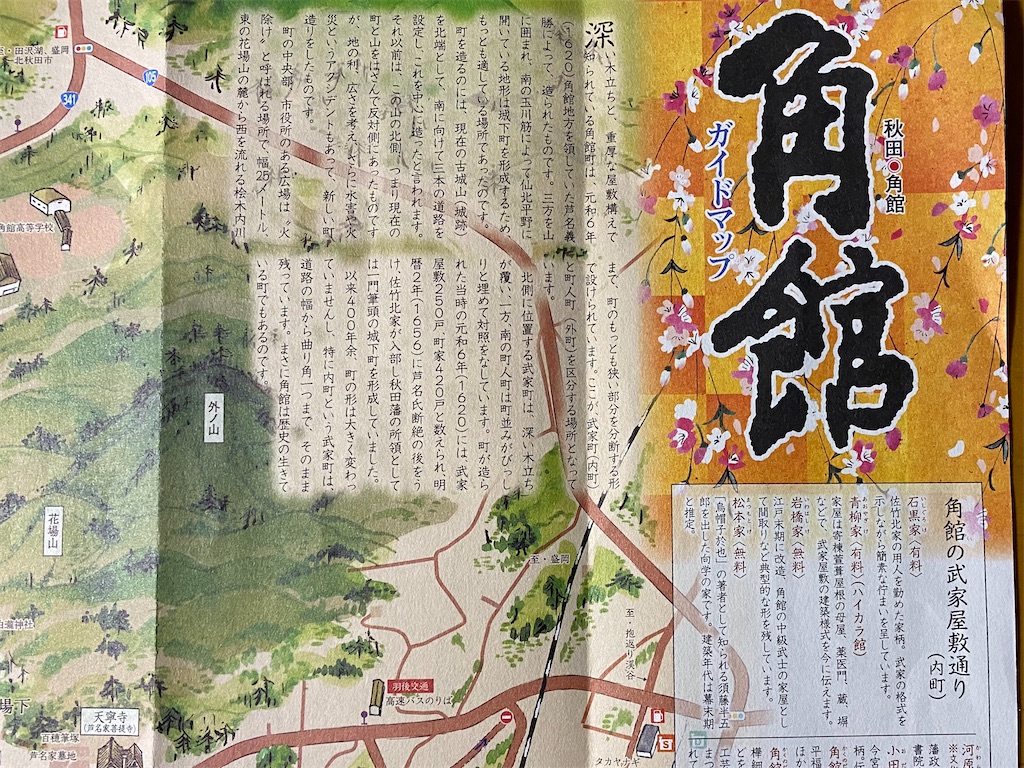 角館
秋田●角館
ガイドマップ
深い木立ちと、重厚な屋敷構えで
知られている角館町は、元和6年
(1620)角館地方を領していた芦名義
勝によって、造られたものです。三方を山
に囲まれ、南の玉川筋によって仙北平野に
開いている地形は城下町を形成するため、
もっとも適している場所であったのです。
町を造るのには、現在の古城山(城跡)
を北端として、南に向けて三本の道路を
設定し、これを中心に造ったと言われます。
それ以前は、この山の北側、つまり現在の
町と山をはさんで反対側にあったものです
が、地の利、広さを考え、さらに水害や火
災というアクシデントもあって、新しい町
造りをしたものです。
町の中央部、市役所のある広場は〝火
除け〟と呼ばれる場所で、幅25メートル、
東の花場山の麓から西を流れる桧木内川
まで、町のもっとも狭い部分を分断する形
で設けられています。ここが、武家町(内町)
と町人町(外町)を区分する場所となって
います。
北側に位置する武家町は、深い木立ち
が覆い、一方、南の町人町は町並みがびっし
りと埋めて対照をなしています。町が造ら
れた当時の元和6年(1620)には、武家
屋敷250戸、町家420戸と数えられ、明
暦2年(1656)に芦名氏断絶の後をう
け、佐竹北家が入部し秋田藩の所領として
は一門筆頭の城下町を形成していました。
以来400年余、町の形は大きく変わっ
ていませんし、特に内町という武家町は、
道路の幅から曲り角一つまで、そのまま
残っています。まさに角館は歴史の生きて
いる町でもあるのです。
角館の武家屋敷通り
(内町)
石黒家〈有料〉
佐竹北家の用人を勤めた家柄。武家の格式を
示しながら簡素な佇まいを呈しています。
青柳家〈有料〉(ハイカラ館)
家屋は寄棟萱葺屋根の母屋、薬医門、蔵、塀
などで、武家屋敷の建築様式を今に伝えます。
岩橋家〈無料〉
江戸末期に改造、角館の中級武士の家屋とし
て間取りなど典型的な形を残しています。
松本家〈無料〉
「烏帽子於也」の著者として知られる須藤半五
郎を出した向学の家です。建築年代は幕末期
と推定。
至・田沢湖、盛岡
北秋田市
105
341
角館高等学校
外ノ山
花場山
至・盛岡
至・抱返り渓谷
羽後交通
高速バスのりば
天寧寺
(芦名家菩提寺)
百穂筆塚
芦名家墓地
タカヤナギ
S